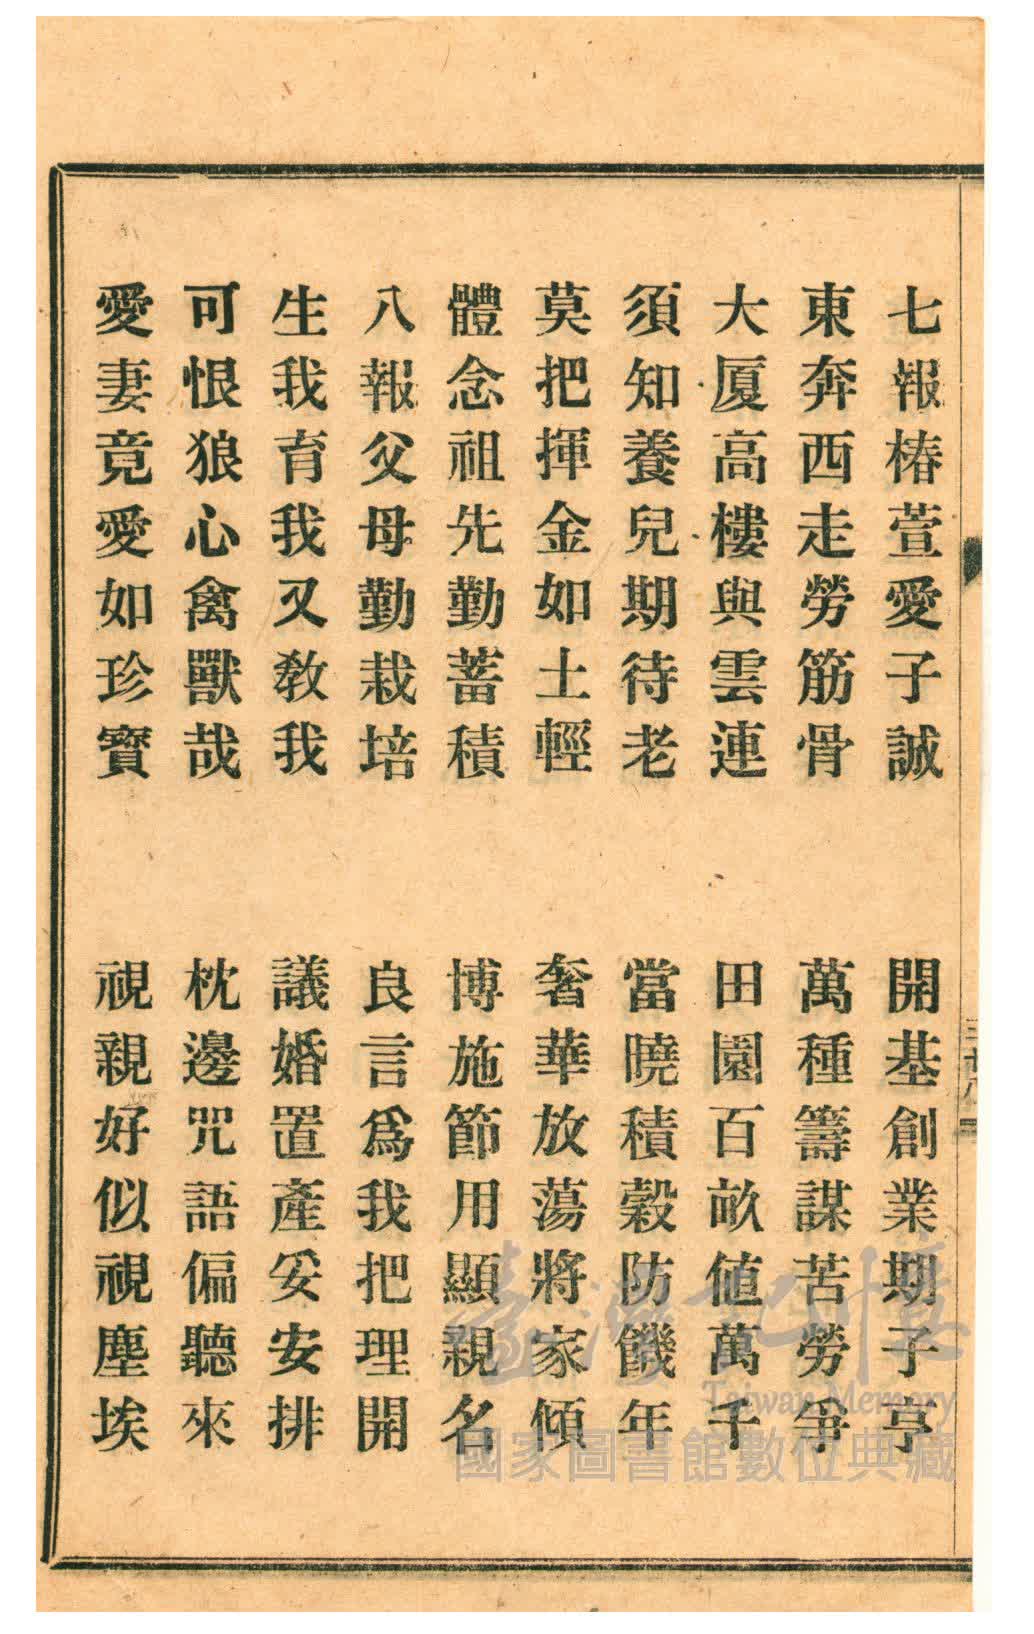 七報椿萱愛子誠　開基創業期子亨
東奔西走勞筋骨　萬種籌謀苦勞爭
大厦高樓與雲連　田園百畝値萬千
須知養兒期待老　當曉積穀防饑年
莫把揮金如土輕　奢華放蕩將家傾
體念祖先勤蓄積　博施節用顯親名
八報父母勤栽培　良言爲我把理開
生我育我又教我　議婚置產妥安排
可恨狼心禽獸哉　枕邊咒語偏聽來
愛妻竟愛如珍寶　視親好似視塵埃
臺灣記憶
Taiwan Memory
國家圖書館數位典藏